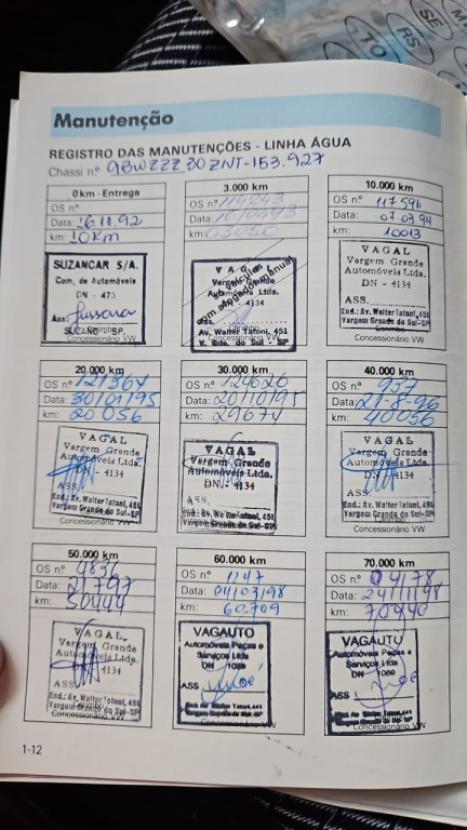 TO
RS
SE
Manutenção
REGISTRO DAS MANUTENÇÕES - LINHA ÁGUA
Chassi nº 9BWZZZ30ZNT-153.927
0 km - Entrega
OS nº
Data: 16.11.92
km: 10km
SUZANCAR S/A.
Com. de Automóveis
DN - 473
Ass:
SUZANO - SP.
Concessionário VW
3.000 km
OS nº 114243
Data:
km: 03050
VAGAL
Vargem Grande
Automóveis Ltda.
DN - 4134
com afogador manual
Ass.
Av. Walter Tatoni, 451
V. Gde. do Sul - SP
Concessionário VW
10.000 km
OS nº 117596
Data: 07.03.94
km: 10013
VAGAL
Vargem Grande
Automóveis Ltda.
DN - 4134
ASS.
End.: Av. Walter Tatoni, 451
Vargem Grande do Sul-SP
Concessionário VW
20.000 km
OS nº 121364
Data: 30/01/95
km: 20 056
VAGAL
Vargem Grande
Automóveis Ltda.
DN - 4134
ASS.
End.: Av. Walter Tatoni, 451
Vargem Grande do Sul-SP
Concessionário VW
30.000 km
OS nº 124626
Data: 20/10/95
km: 29674
VAGAL
Vargem Grande
Automóveis Ltda.
DN - 4134
ASS.
End.: Av. Walter Tatoni, 451
Vargem Grande do Sul-SP
Concessionário VW
40.000 km
OS nº 937
Data: 27-8-96
km: 40056
VAGAL
Vargem Grande
Automóveis Ltda.
DN - 4134
ASS.
End.: Av. Walter Tatoni, 451
Vargem Grande do Sul-SP
Concessionário VW
50.000 km
OS nº 4836
Data: 21/7/97
km: 50444
VAGAL
Vargem Grande
Automóveis Ltda.
DN - 4134
ASS.
End.: Av. Walter Tatoni, 451
Vargem Grande do Sul-SP
Concessionário VW
60.000 km
OS nº 1147
Data: 04/03/98
km: 60.709
VAGAUTO
Automóveis Peças e
Serviços Ltda
DN - 1069
ASS
End. Av. Walter Tatoni, 441
Vargem Grande do Sul-SP
Concessionário VW
70.000 km
OS nº 04178
Data: 24/11/98
km: 70940
VAGAUTO
Automóveis Peças e
Serviços Ltda
DN - 1069
ASS
End. Av. Walter Tatoni, 441
Vargem Grande do Sul-SP
Concessionário VW
1-12